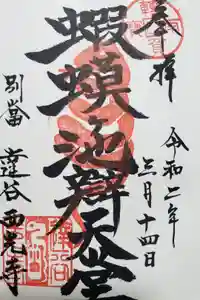 奉拝
令和二年
三月十四日
蝦蟆池辯天堂
別當
達谷西光寺